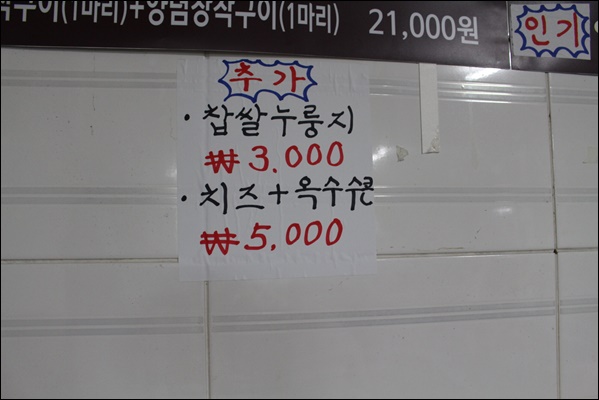 구이(1마리)+양념장작구이(1마리) 21,000원
인기
추가
· 찹쌀누룽지
₩3.000
· 치즈+옥수수콘
₩5.000